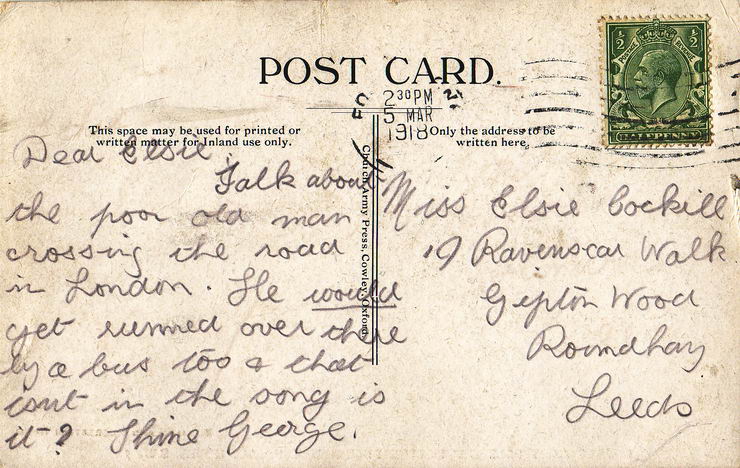 POST CARD.
2 30 PM
5 MAR
1918
This space may be used for printed or
written matter for Inland use only.
Only the address to be
written here.
POSTAGE REVENUE
½ ½
HALFPENNY
Church Army Press, Cowley, Oxford.
Dear Elsie,
Talk about
the poor old man
crossing the road
in London. He would
get runned over there
by a bus too & that
isnt in the song is
it? Thine George.
Miss Elsie Cockill
19 Ravenscar Walk
Gipton Wood
Roundhay
Leeds